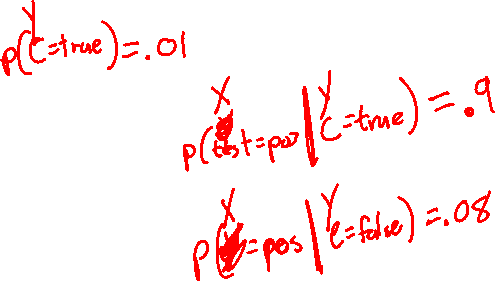 Y
P(C=true)=.01
X Y
P(test=pos|C=true)=.9
X Y
P( =pos|C=false)=.08